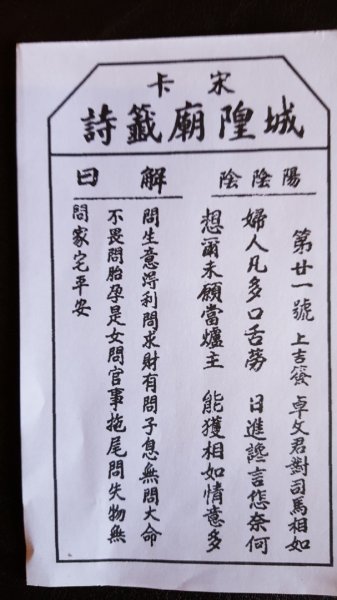 宋卡
城隍廟籤詩
陽陰陰
第廿一號 上吉簽 卓文君對司馬相如
婦人凡多口舌勞 日進讒言怎奈何
想爾未願當爐主 能獲相如情意多
解曰
問生意淂利問求財有問子息無問大命
不畏問胎孕是女問官事拖尾問失物無
問家宅平安